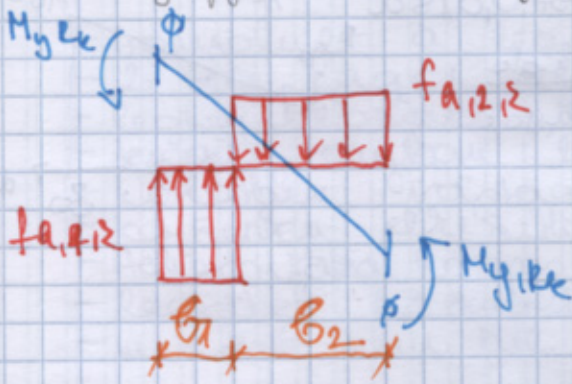 My,Rk
ϕ
fa,2,z
fa,1,z
My,Rk
ϕ
b1
b2